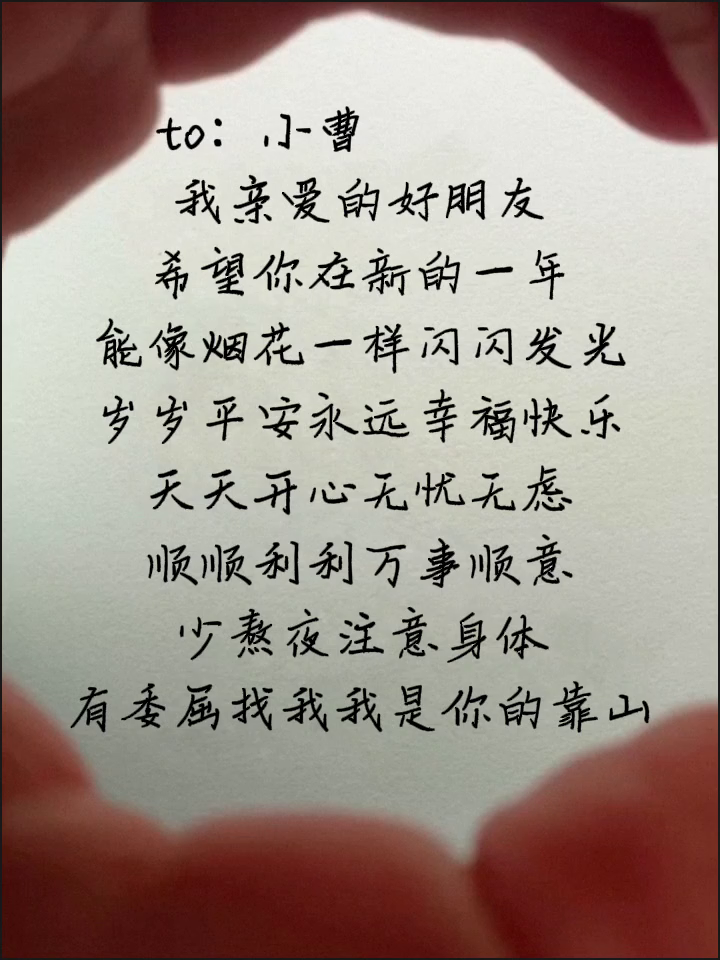 to：小曹
我亲爱的好朋友
希望你在新的一年
能像烟花一样闪闪发光
岁岁平安永远幸福快乐
天天开心无忧无虑
顺顺利利万事顺意
少熬夜注意身体
有委屈找我我是你的靠山